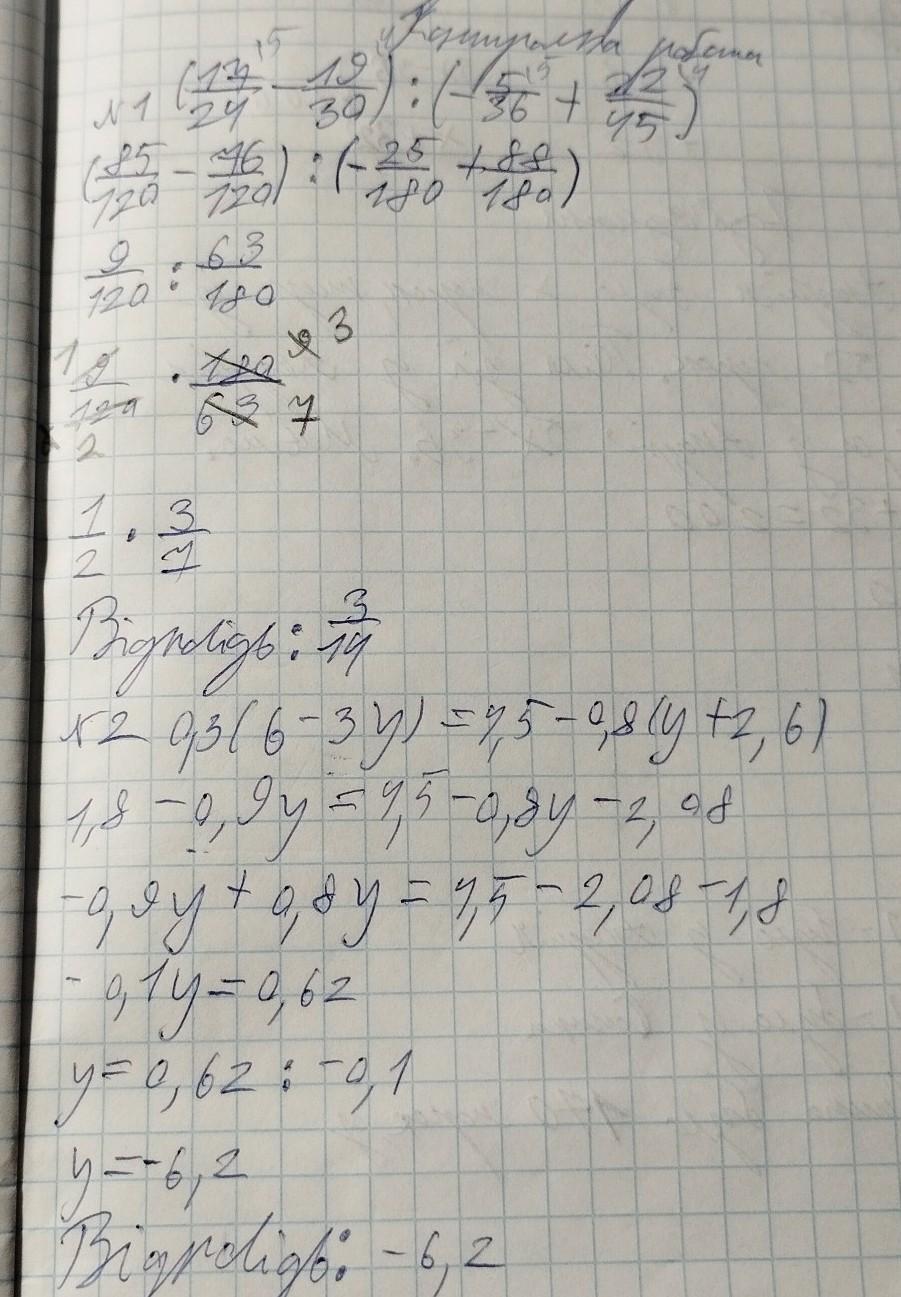 Контрольна робота
№1 (17/24 - 19/30) : (-5/36 + 22/45)
(85/120 - 76/120) : (-25/180 + 88/180)
9/120 : 63/180
9/120 · 180/63
1/2 · 3/7
Відповідь: 3/14
№2 0,3(6-3y)=4,5-0,8(y+2,6)
1,8-0,9y=4,5-0,8y-2,08
-0,9y+0,8y=4,5-2,08-1,8
-0,1y=0,62
y=0,62:-0,1
y=-6,2
Відповідь: -6,2